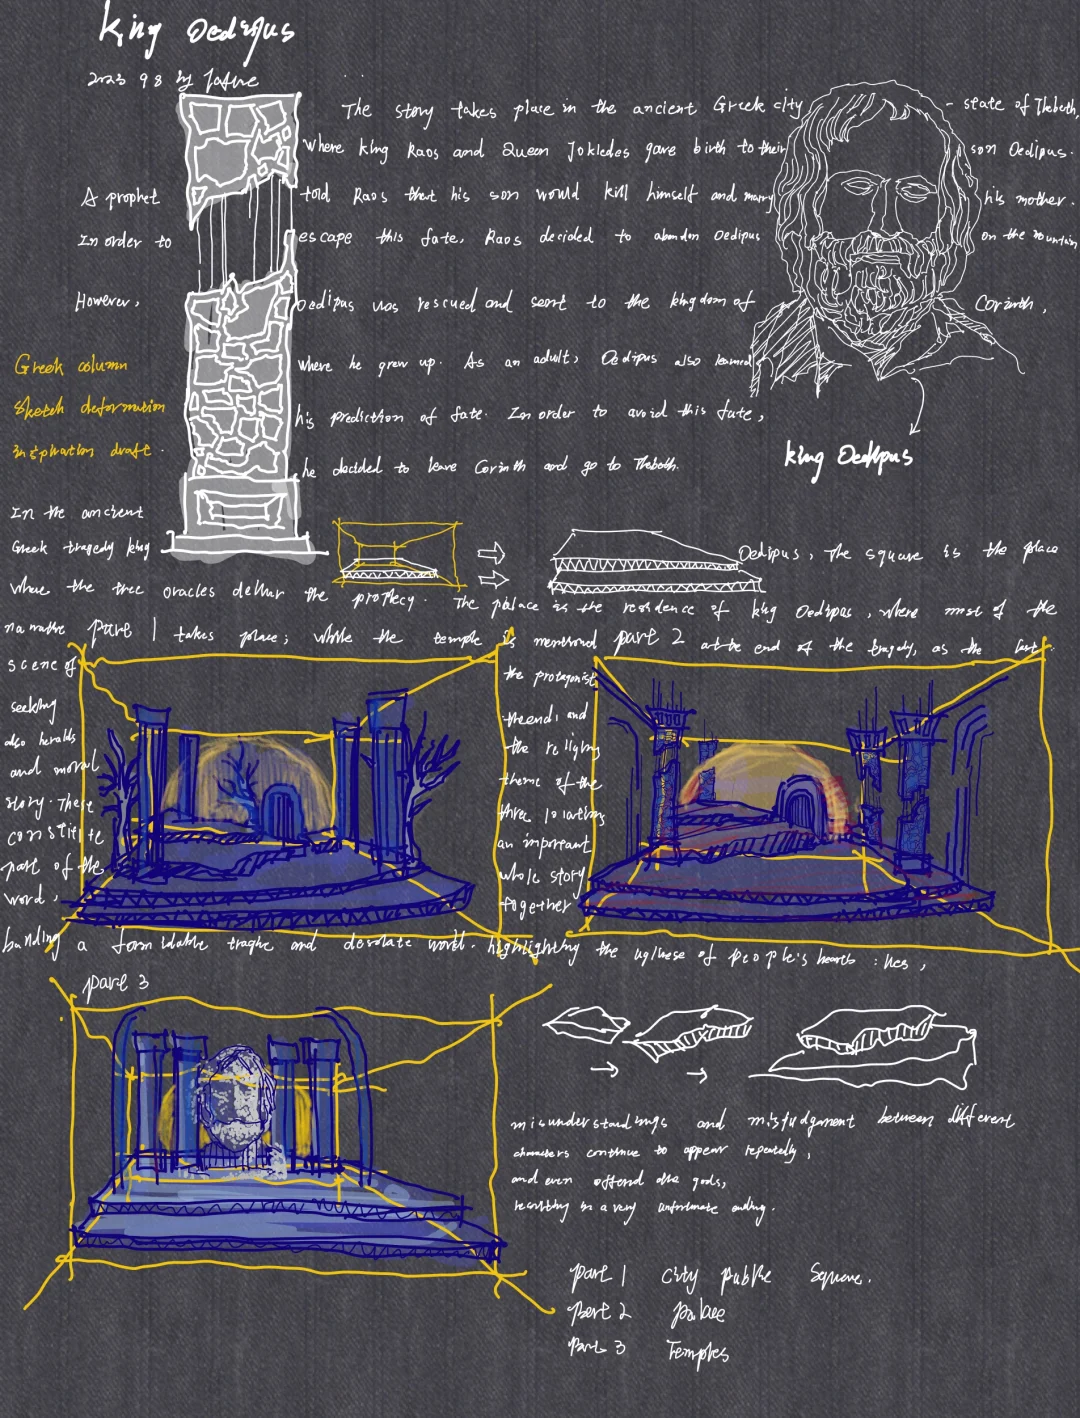 King Oedipus
2023 9 8 by
The story takes place in the ancient Greek city - state of Thebeth,
where king Raos and Queen Jokledes gave birth to their son Oedipus.
A prophet told Raos that his son would kill himself and marry his mother.
In order to escape this fate, Raos decided to abandon Oedipus on the mountain
However, Oedipus was rescued and sent to the kingdom of Corinth,
where he grew up. As an adult, Oedipus also learned
his prediction of fate. In order to avoid this fate,
he decided to leave Corinth and go to Thebeth.
Greek column
Sketch deformation
inspiration draft.
king Oedipus
In the ancient
Greek tragedy king Oedipus, the square is the place
where the tree oracles deliver the prophecy. The palace is the residence of king Oedipus, where most of the
narrative takes place; while the temple is mentioned at the end of the tragedy, as the last
part 1
part 2
scene of the protagonist
seeking the end, and
also heralds the religious
and moral theme of the
story. These three locations
constitute an important
part of the whole story
word, together
building a formidable tragic and desolate world. highlighting the ugliness of people's hearts
part 3
misunderstandings and misjudgment between different
characters continue to appear repeatedly,
and even offend the gods,
resulting in a very unfortunate ending.
part 1 City public Square.
Part 2 palace
Part 3 Temples